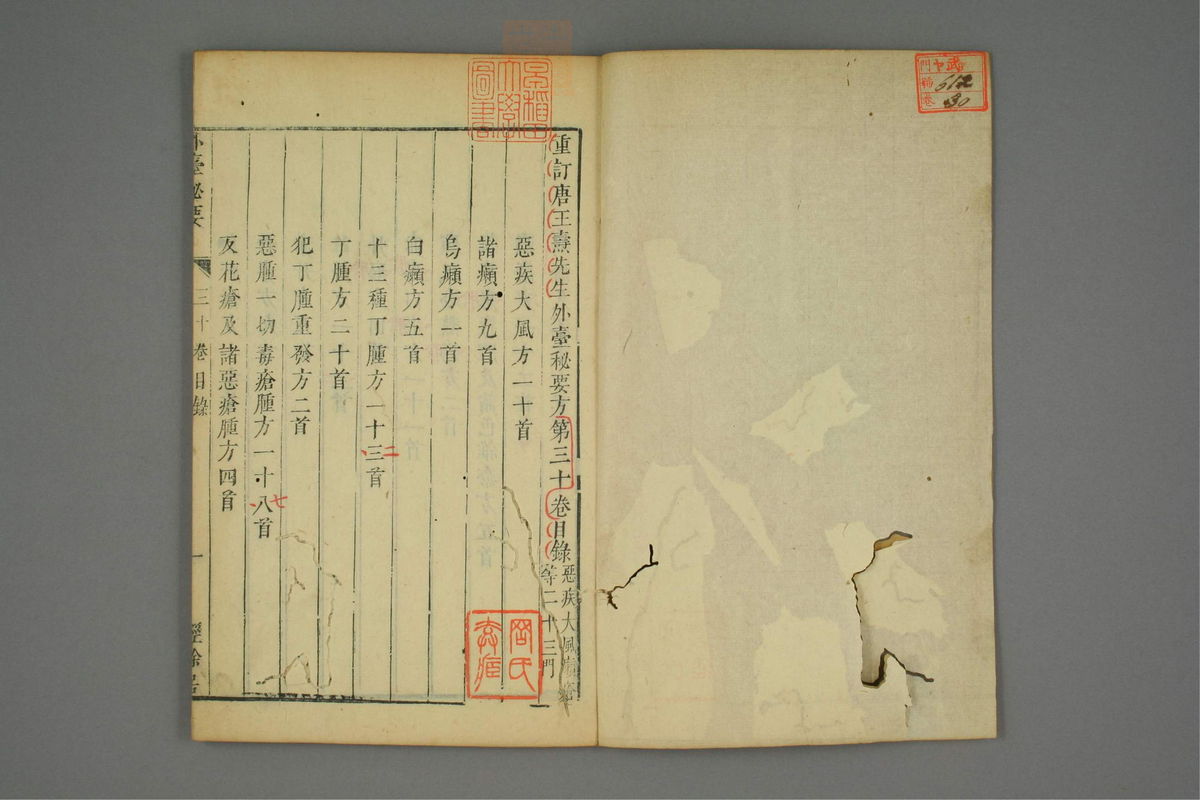 重訂唐王燾先生外臺秘要方第三十卷目錄
惡疾大風癩瘡
等二十三門
惡疾大風方一十首
諸癩方九首
烏癩方一首
白癩方五首
十三種丁腫方一十三首
二
丁腫方二十首
犯丁腫重發方二首
惡腫一切毒瘡腫方一十八首
七
反花瘡及諸惡瘡腫方四首
外臺秘要
三十卷目錄
一
經餘居
早稻田大學圖書
門
號 612
卷 30